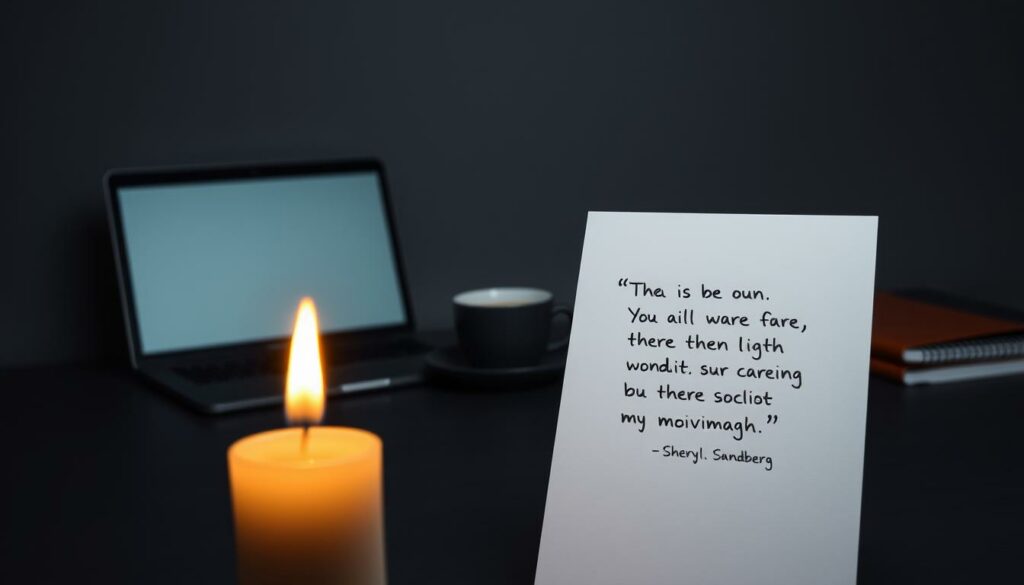 “Thea is be oun.
You aill ware fare,
there then ligth
wondıt. sur careing
bu there socliot
my moivimagh.”
–Sheryl. Sandberg